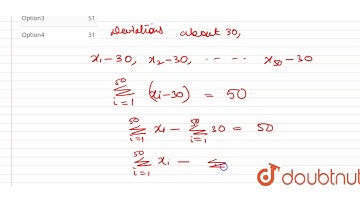 Option3 51
Option4 31
Deviations about 30,
x₁-30, x₂-30, ---- x₅₀-30
50 Σ i=1 (xi-30) = 50
50 Σ i=1 xi - 50 Σ i=1 30 = 50
50 Σ i=1 xi -
doubtnut